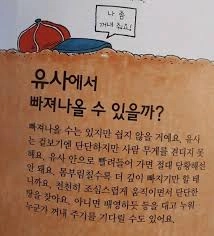 나 좀
꺼내 줘요!
유사에서
빠져나올 수 있을까?
빠져나올 수는 있지만 쉽지 않을 거예요. 유사
는 겉보기엔 단단하지만 사람 무게를 견디지 못
해요. 유사 안으로 빨려들어 가면 절대 당황해선
안 돼요. 몸부림칠수록 더 깊이 빠지기만 할 테
니까요. 천천히 조심스럽게 움직이면서 단단한
땅을 찾아요. 아니면 배영하듯 등을 대고 누워
누군가 꺼내 주기를 기다릴 수도 있어요.